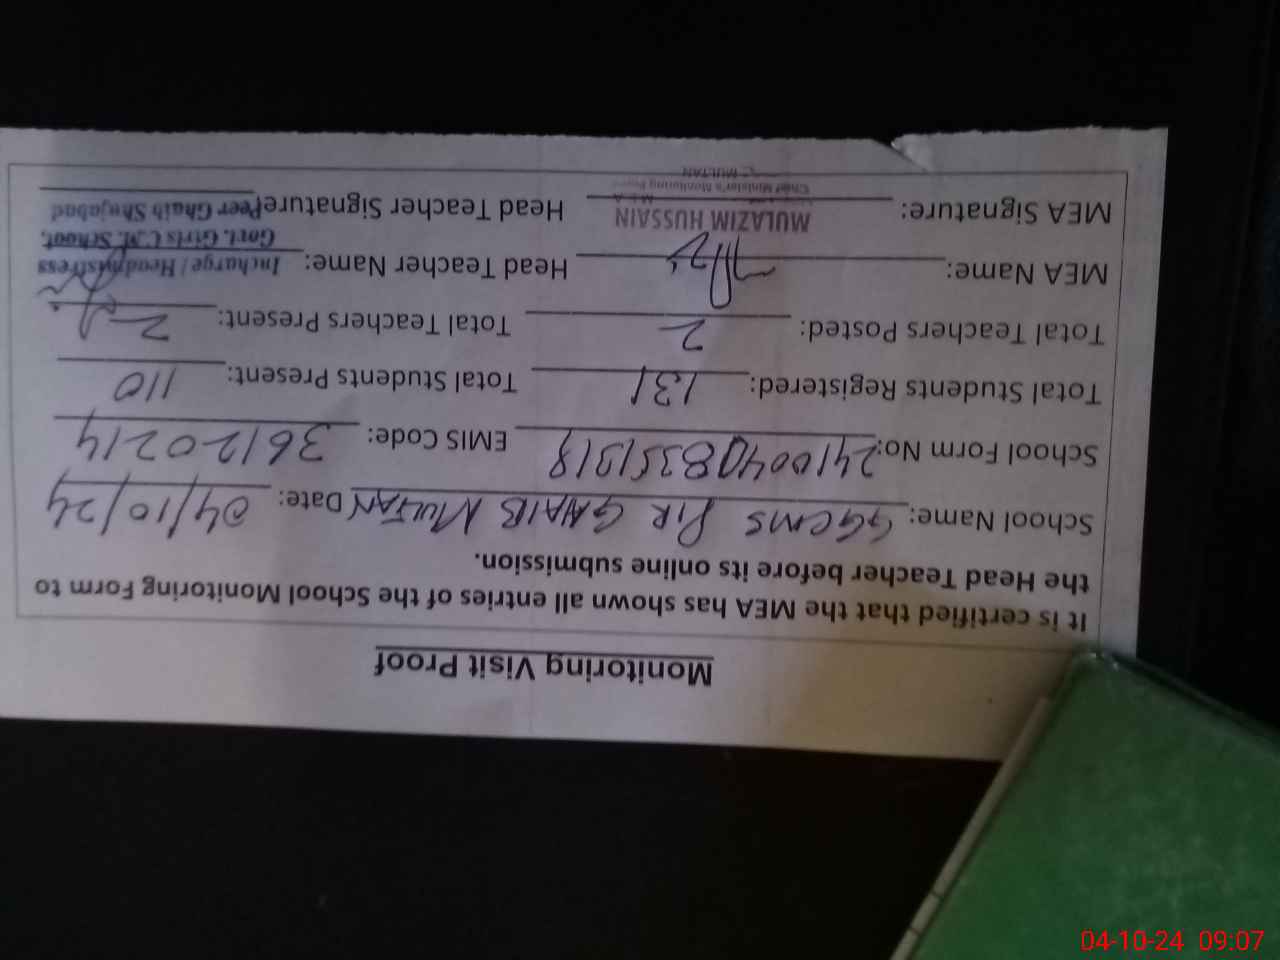 Monitoring Visit Proof
It is certified that the MEA has shown all entries of the School Monitoring Form to
the Head Teacher before its online submission.
School Name: GGCMS PIR GHAIB MULTAN Date: 04/10/24
School Form No: EMIS Code: 36120214
Total Students Registered: 131 Total Students Present: 110
Total Teachers Posted: 2 Total Teachers Present: 2
MEA Name: Head Teacher Name: Incharge / Headmistress
Govt. Girls C.M. School,
MULAZIM HUSSAIN
MEA Signature: Head Teacher Signature Peer Ghaib Shujabad
M.E.A
Chief Minister's Monitoring Force
MULTAN
04-10-24 09:07